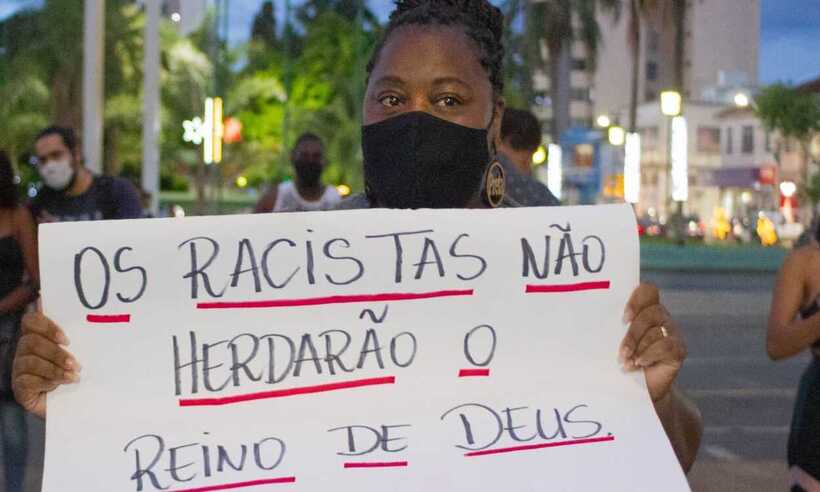 OS RACISTAS NÃO
HERDARÃO O
REINO DE DEUS.